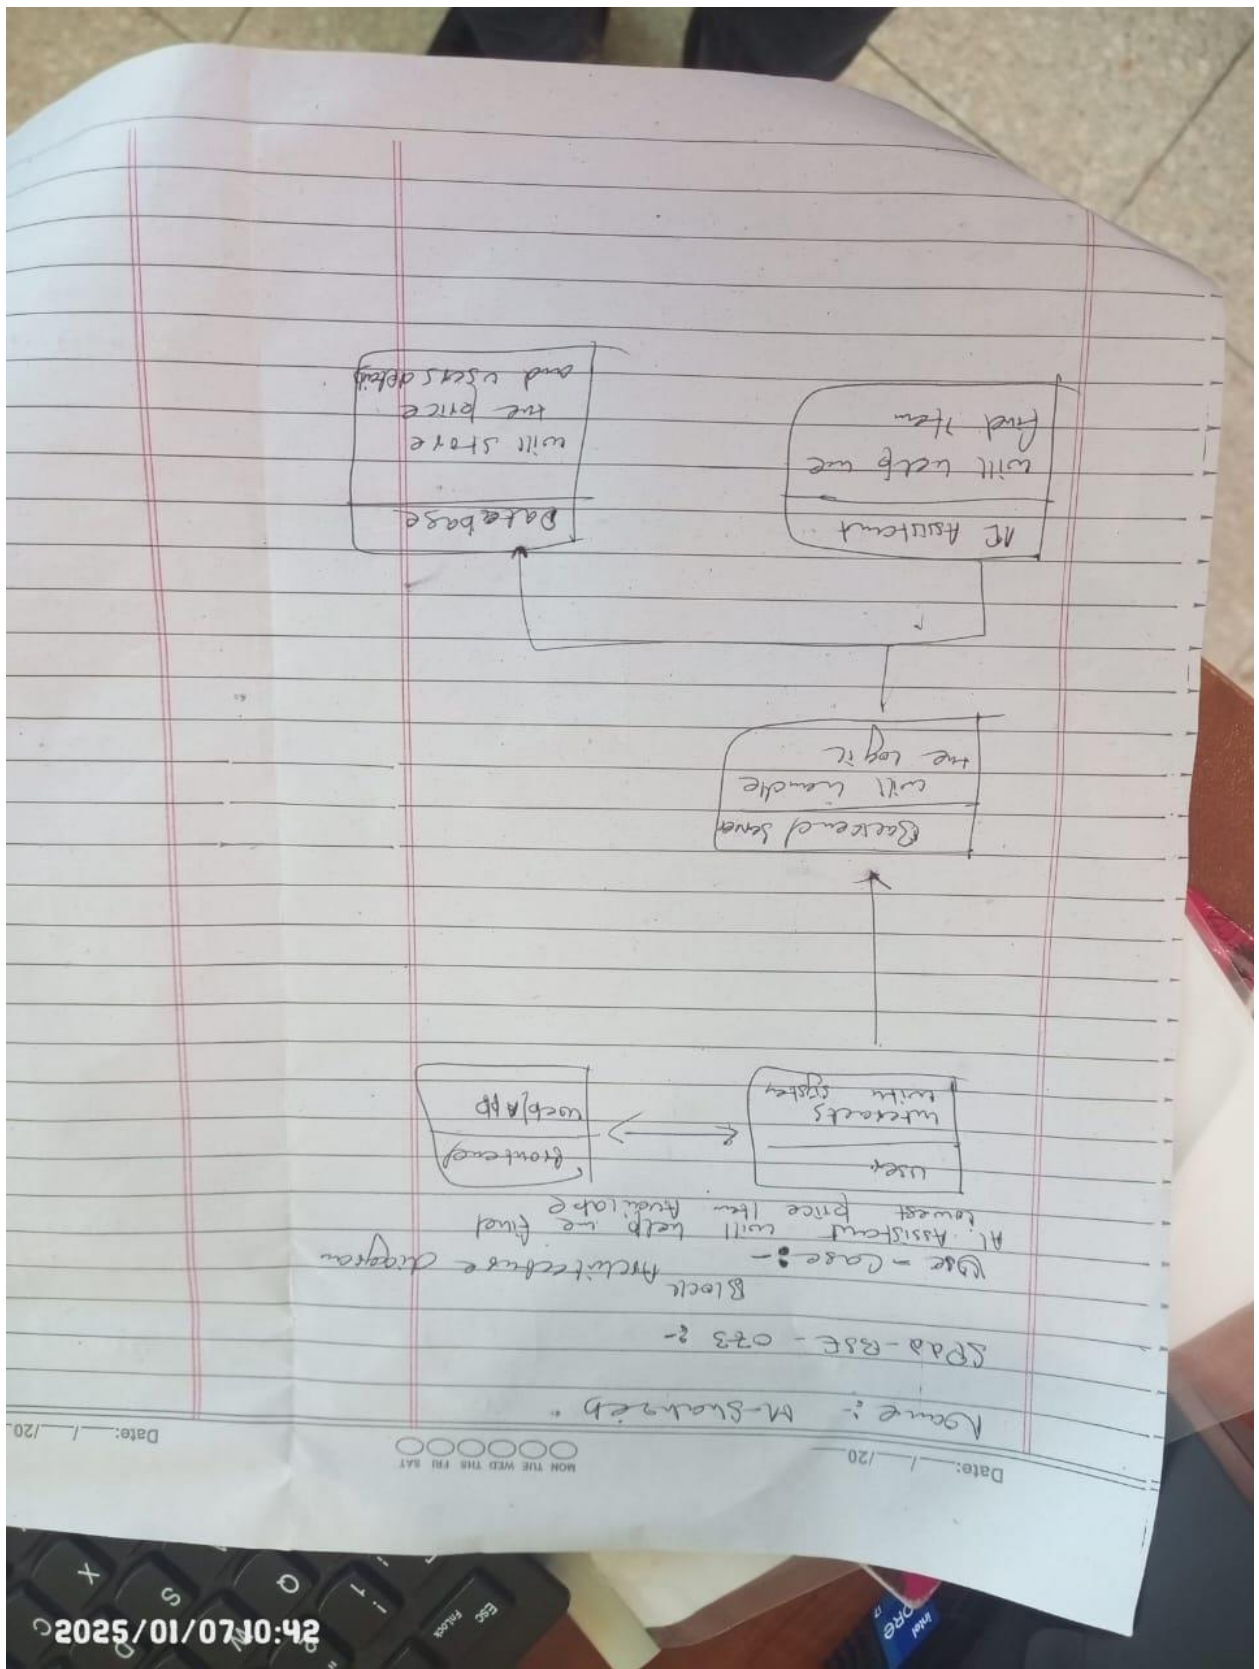 Date: __/__/20__
MON TUE WED THS FRI SAT
Date: __/__/20
Name :- M-Shahzeb
SP22-BSE-073 :-
Block
Use-Case :- Architecture diagram
AI Assistant will help me find
Lowest price Item Available
User
interacts
with system
Frontend
Web/App
Backend Server
will handle
the logic
AI Assistant
will help me
find Item
Database
will store
the price
and users details
2025/01/07 10:42
Esc
FnLock
!
1
Q
W
S
X
D
C
intel
CORE
i7